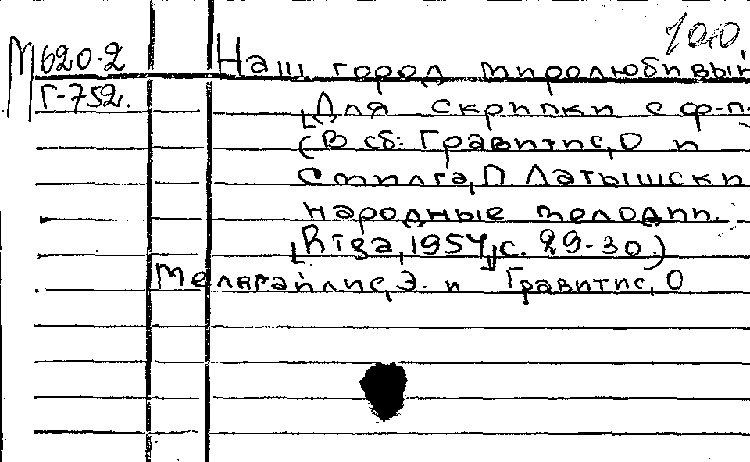 100
М620-2 Наш город миролюбивый
Г-752. [Для скрипки с ф-п.
(В сб: Гравитис, О и
Стилга, П Латышски
народные мелодии.
[Rīga, 1954, с. 29-30.)
Мелнгайлис, Э. и Гравитис, О